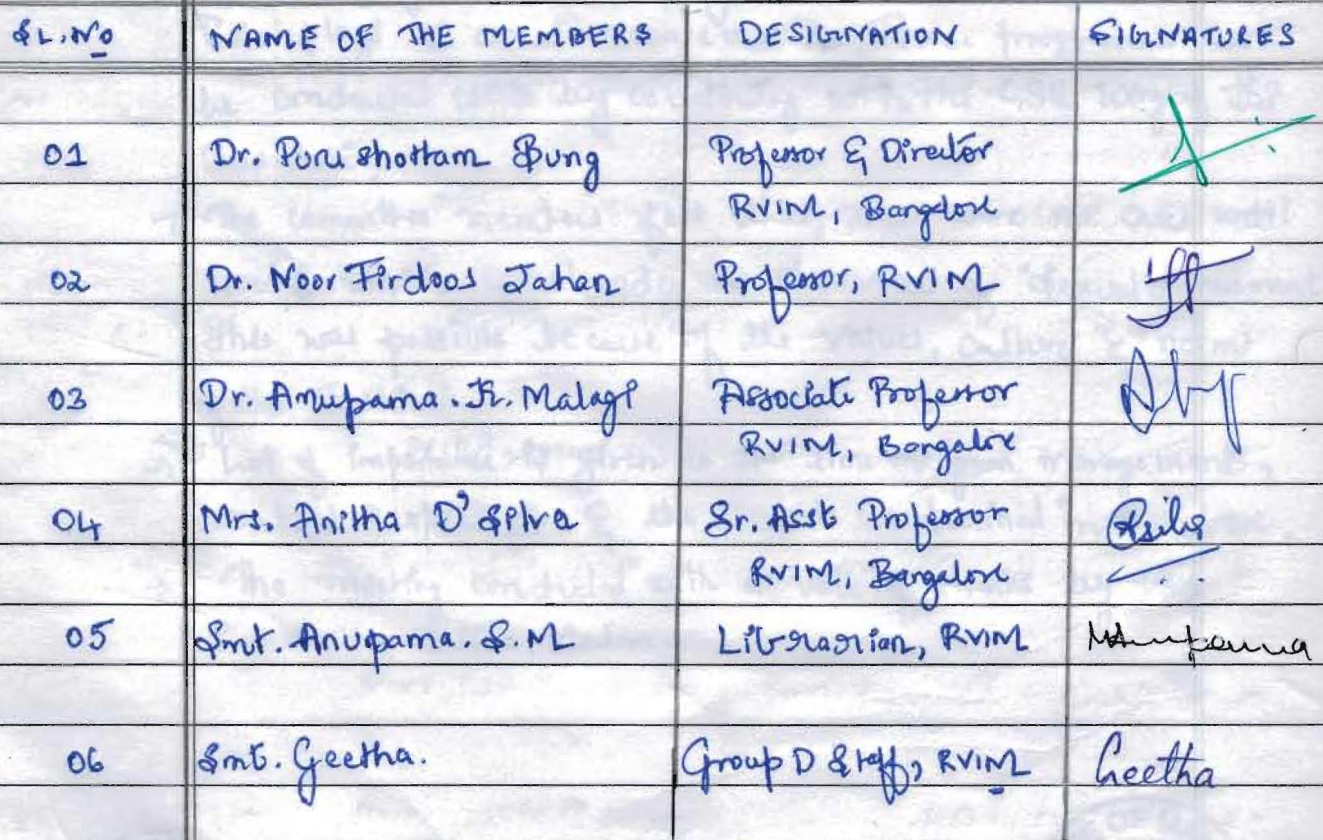 SL.No NAME OF THE MEMBERS DESIGNATION SIGNATURES
01 Dr. Purushottam Bung Professor & Director
RVIM, Bangalore
02 Dr. Noor Firdoos Jahan Professor, RVIM
03 Dr. Anupama. K. Malagi Associate Professor
RVIM, Bangalore
04 Mrs. Anitha D'Silva Sr. Asst Professor
RVIM, Bangalore
05 Smt. Anupama. S. M Librarian, RVIM Anupama
06 Smt. Geetha. Group D Staff, RVIM Geetha